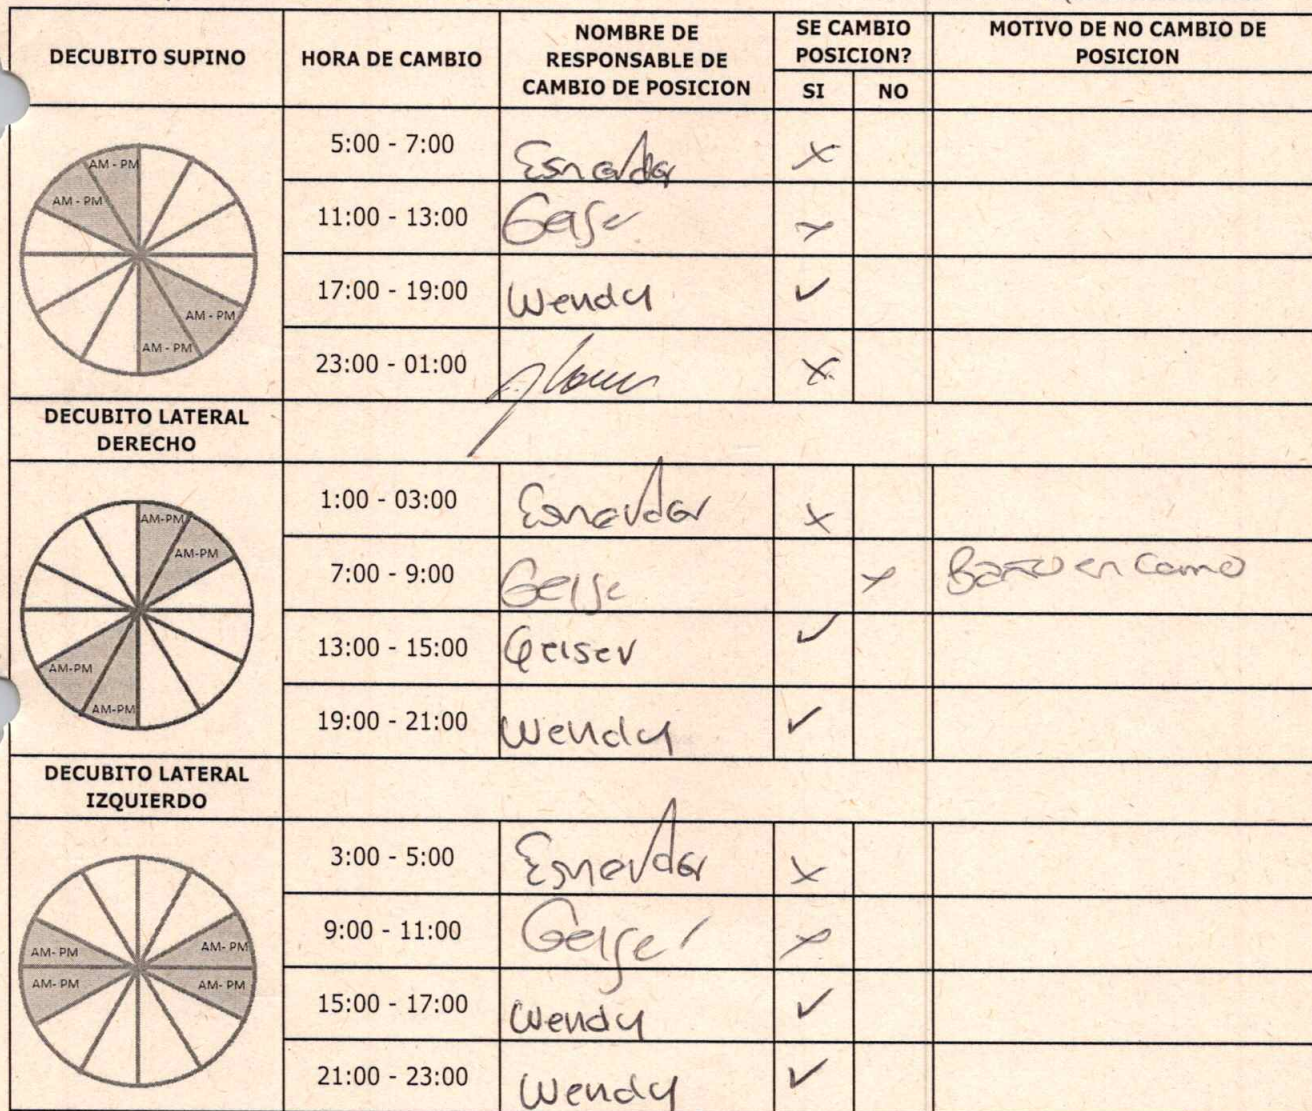 DECUBITO SUPINO HORA DE CAMBIO NOMBRE DE RESPONSABLE DE CAMBIO DE POSICION SE CAMBIO POSICION? MOTIVO DE NO CAMBIO DE POSICION
SI NO
AM - PM
AM - PM
AM - PM
AM - PM
5:00 - 7:00 x
11:00 - 13:00 x
17:00 - 19:00 Wendy ✓
23:00 - 01:00 x
DECUBITO LATERAL DERECHO
AM-PM
AM-PM
AM-PM
AM-PM
1:00 - 03:00 x
7:00 - 9:00 x Baño en Cama
13:00 - 15:00 Geiser ✓
19:00 - 21:00 Wendy ✓
DECUBITO LATERAL IZQUIERDO
AM- PM
AM- PM
AM- PM
AM- PM
3:00 - 5:00 x
9:00 - 11:00 x
15:00 - 17:00 Wendy ✓
21:00 - 23:00 Wendy ✓